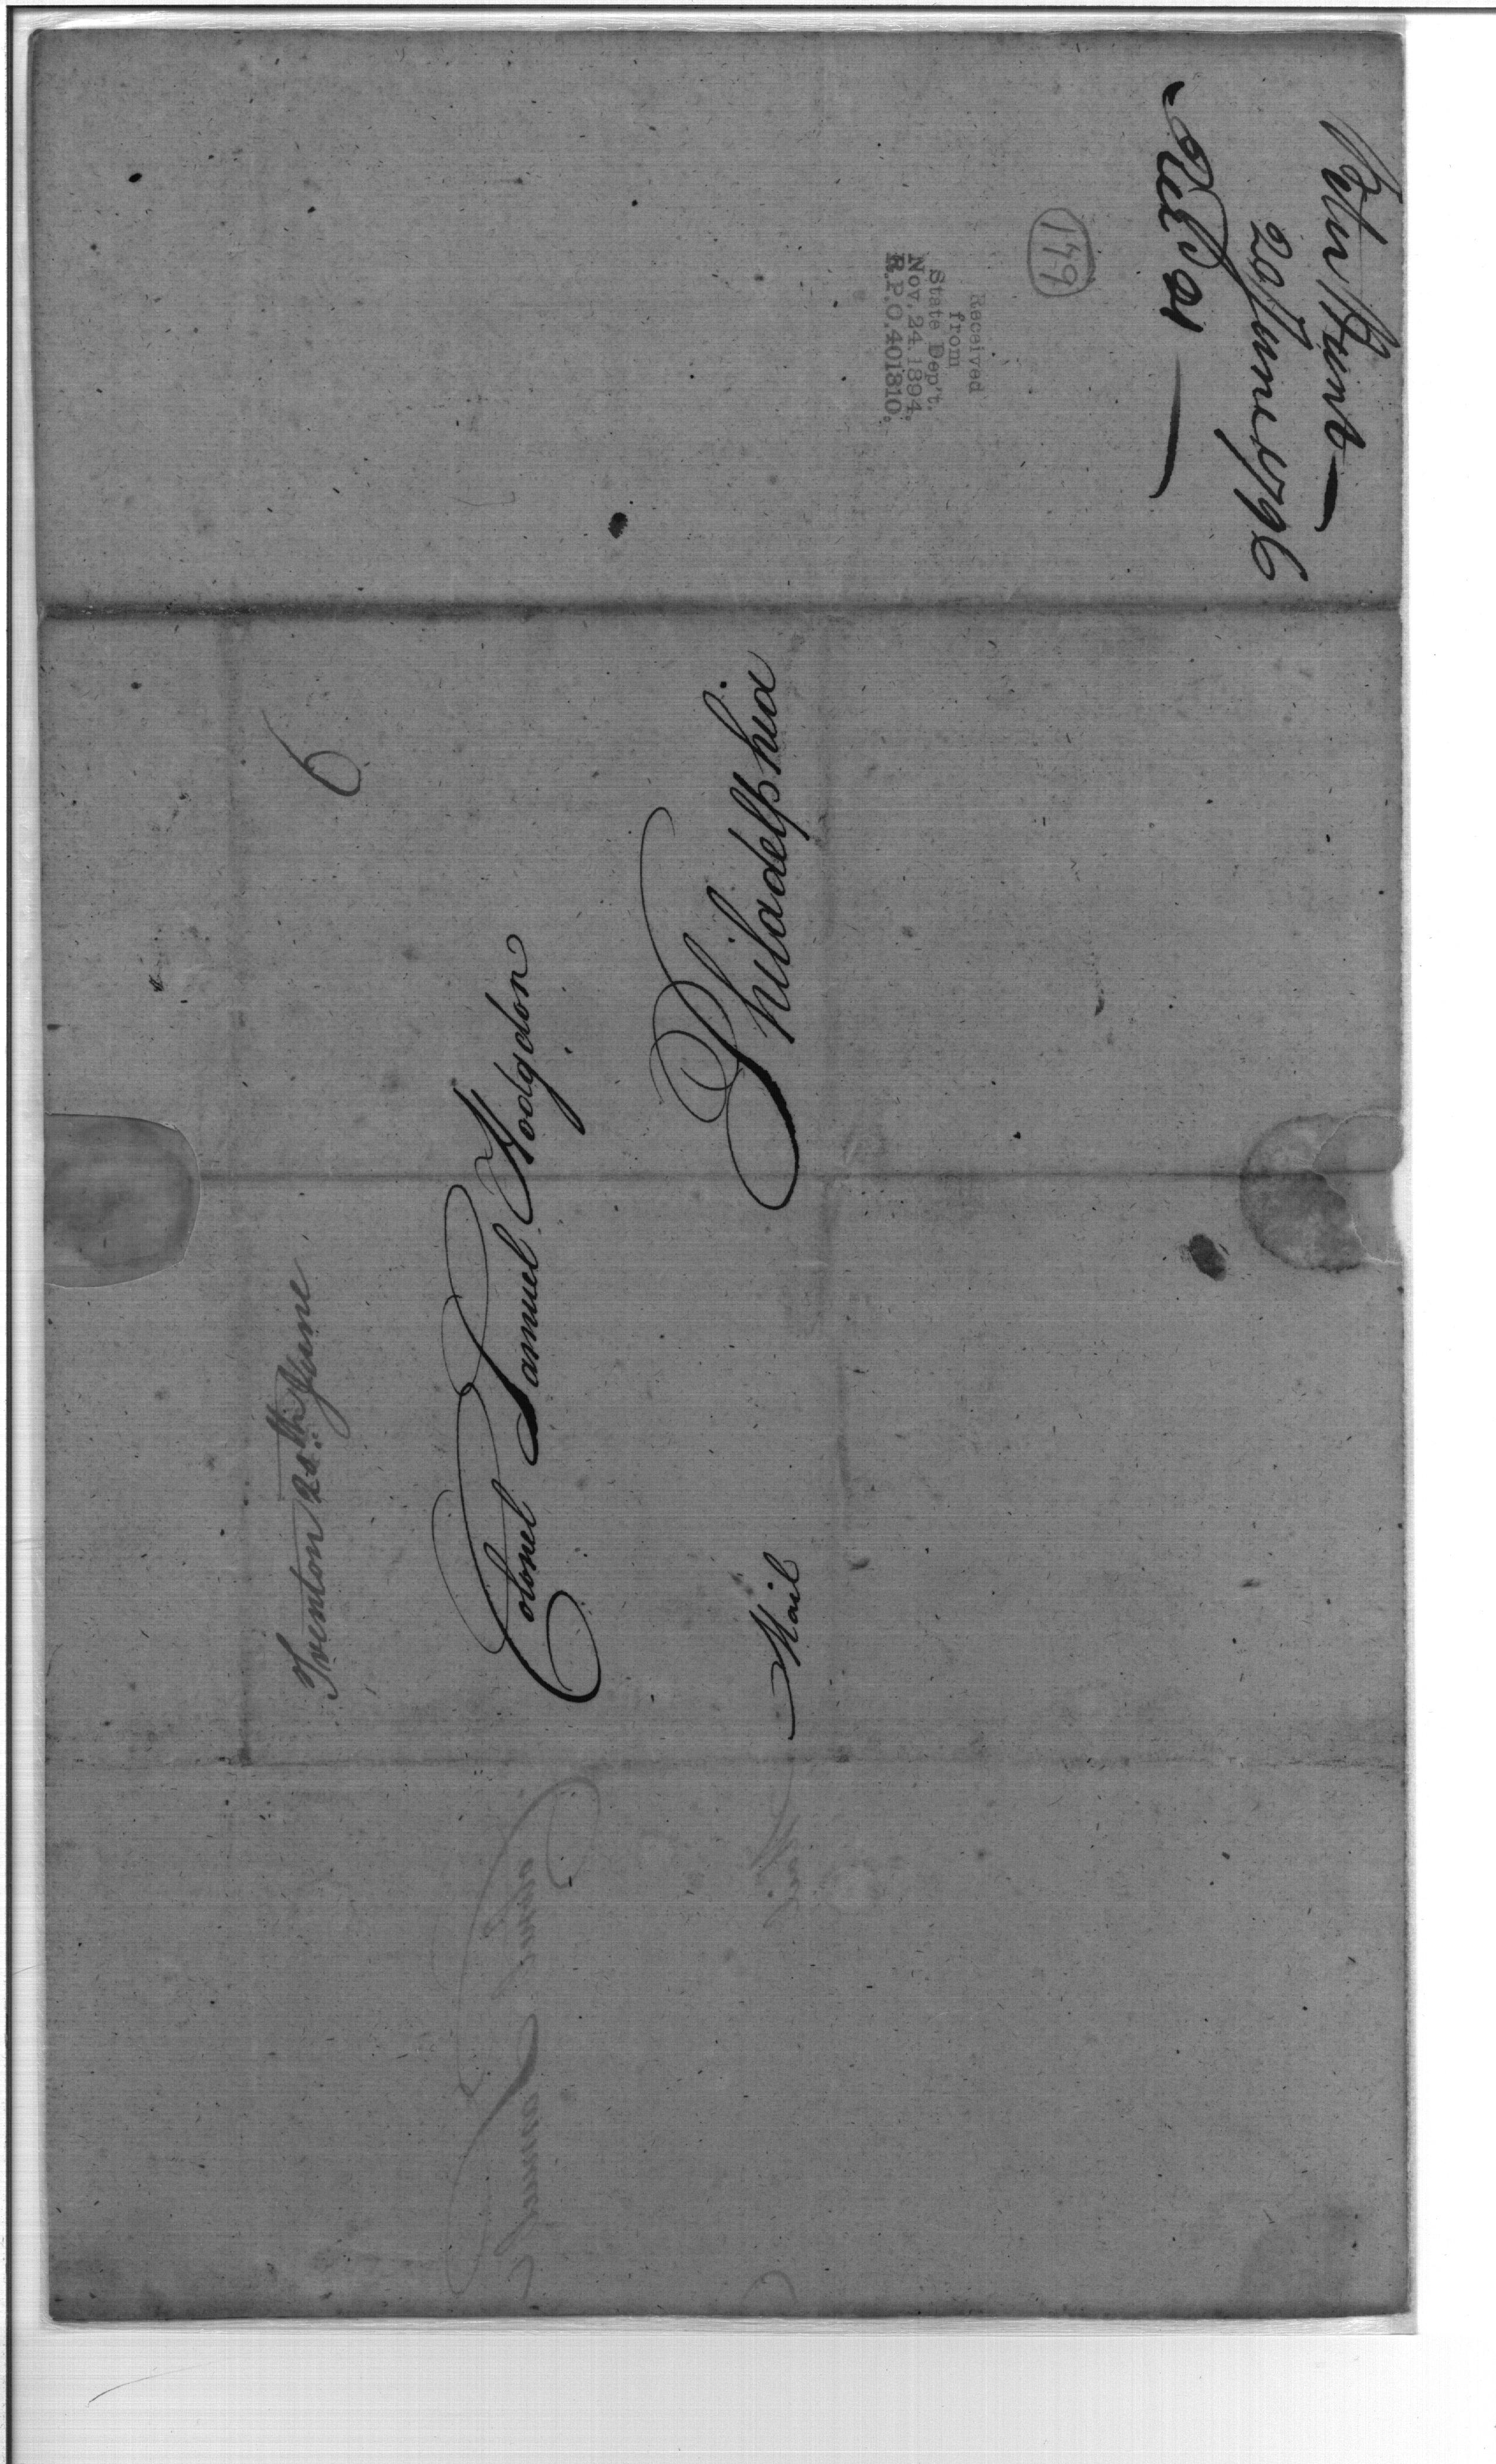 Trenton 20th June
6
Colonel Samuel Hodgdon
Philadelphia
Mail
Peter Hunt—
20 June 1796
Recd 21—
Received
from
State Dep't.
Nov. 24. 1894,
R.P.O. 401810.